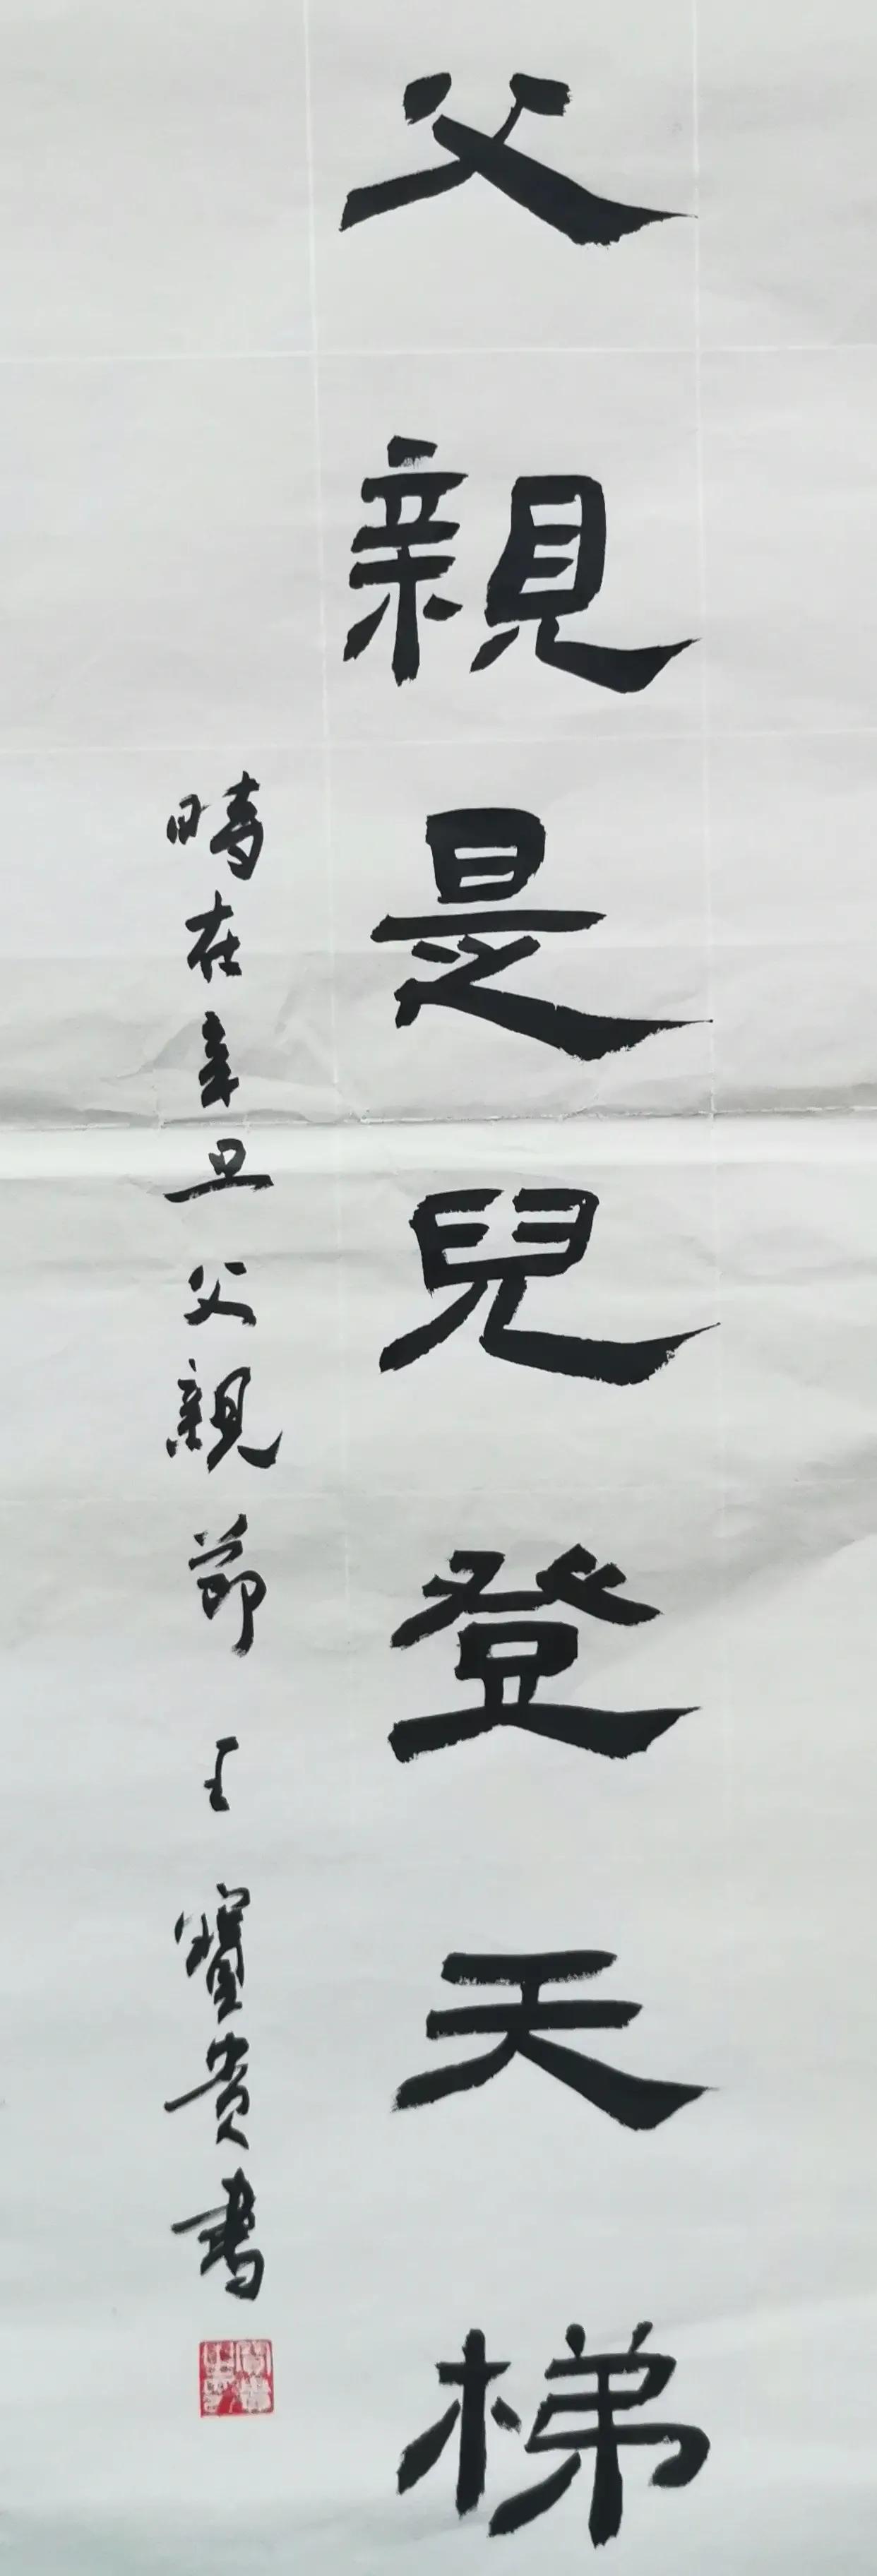 父親是兒登天梯
時在辛丑父親節王寶貴書